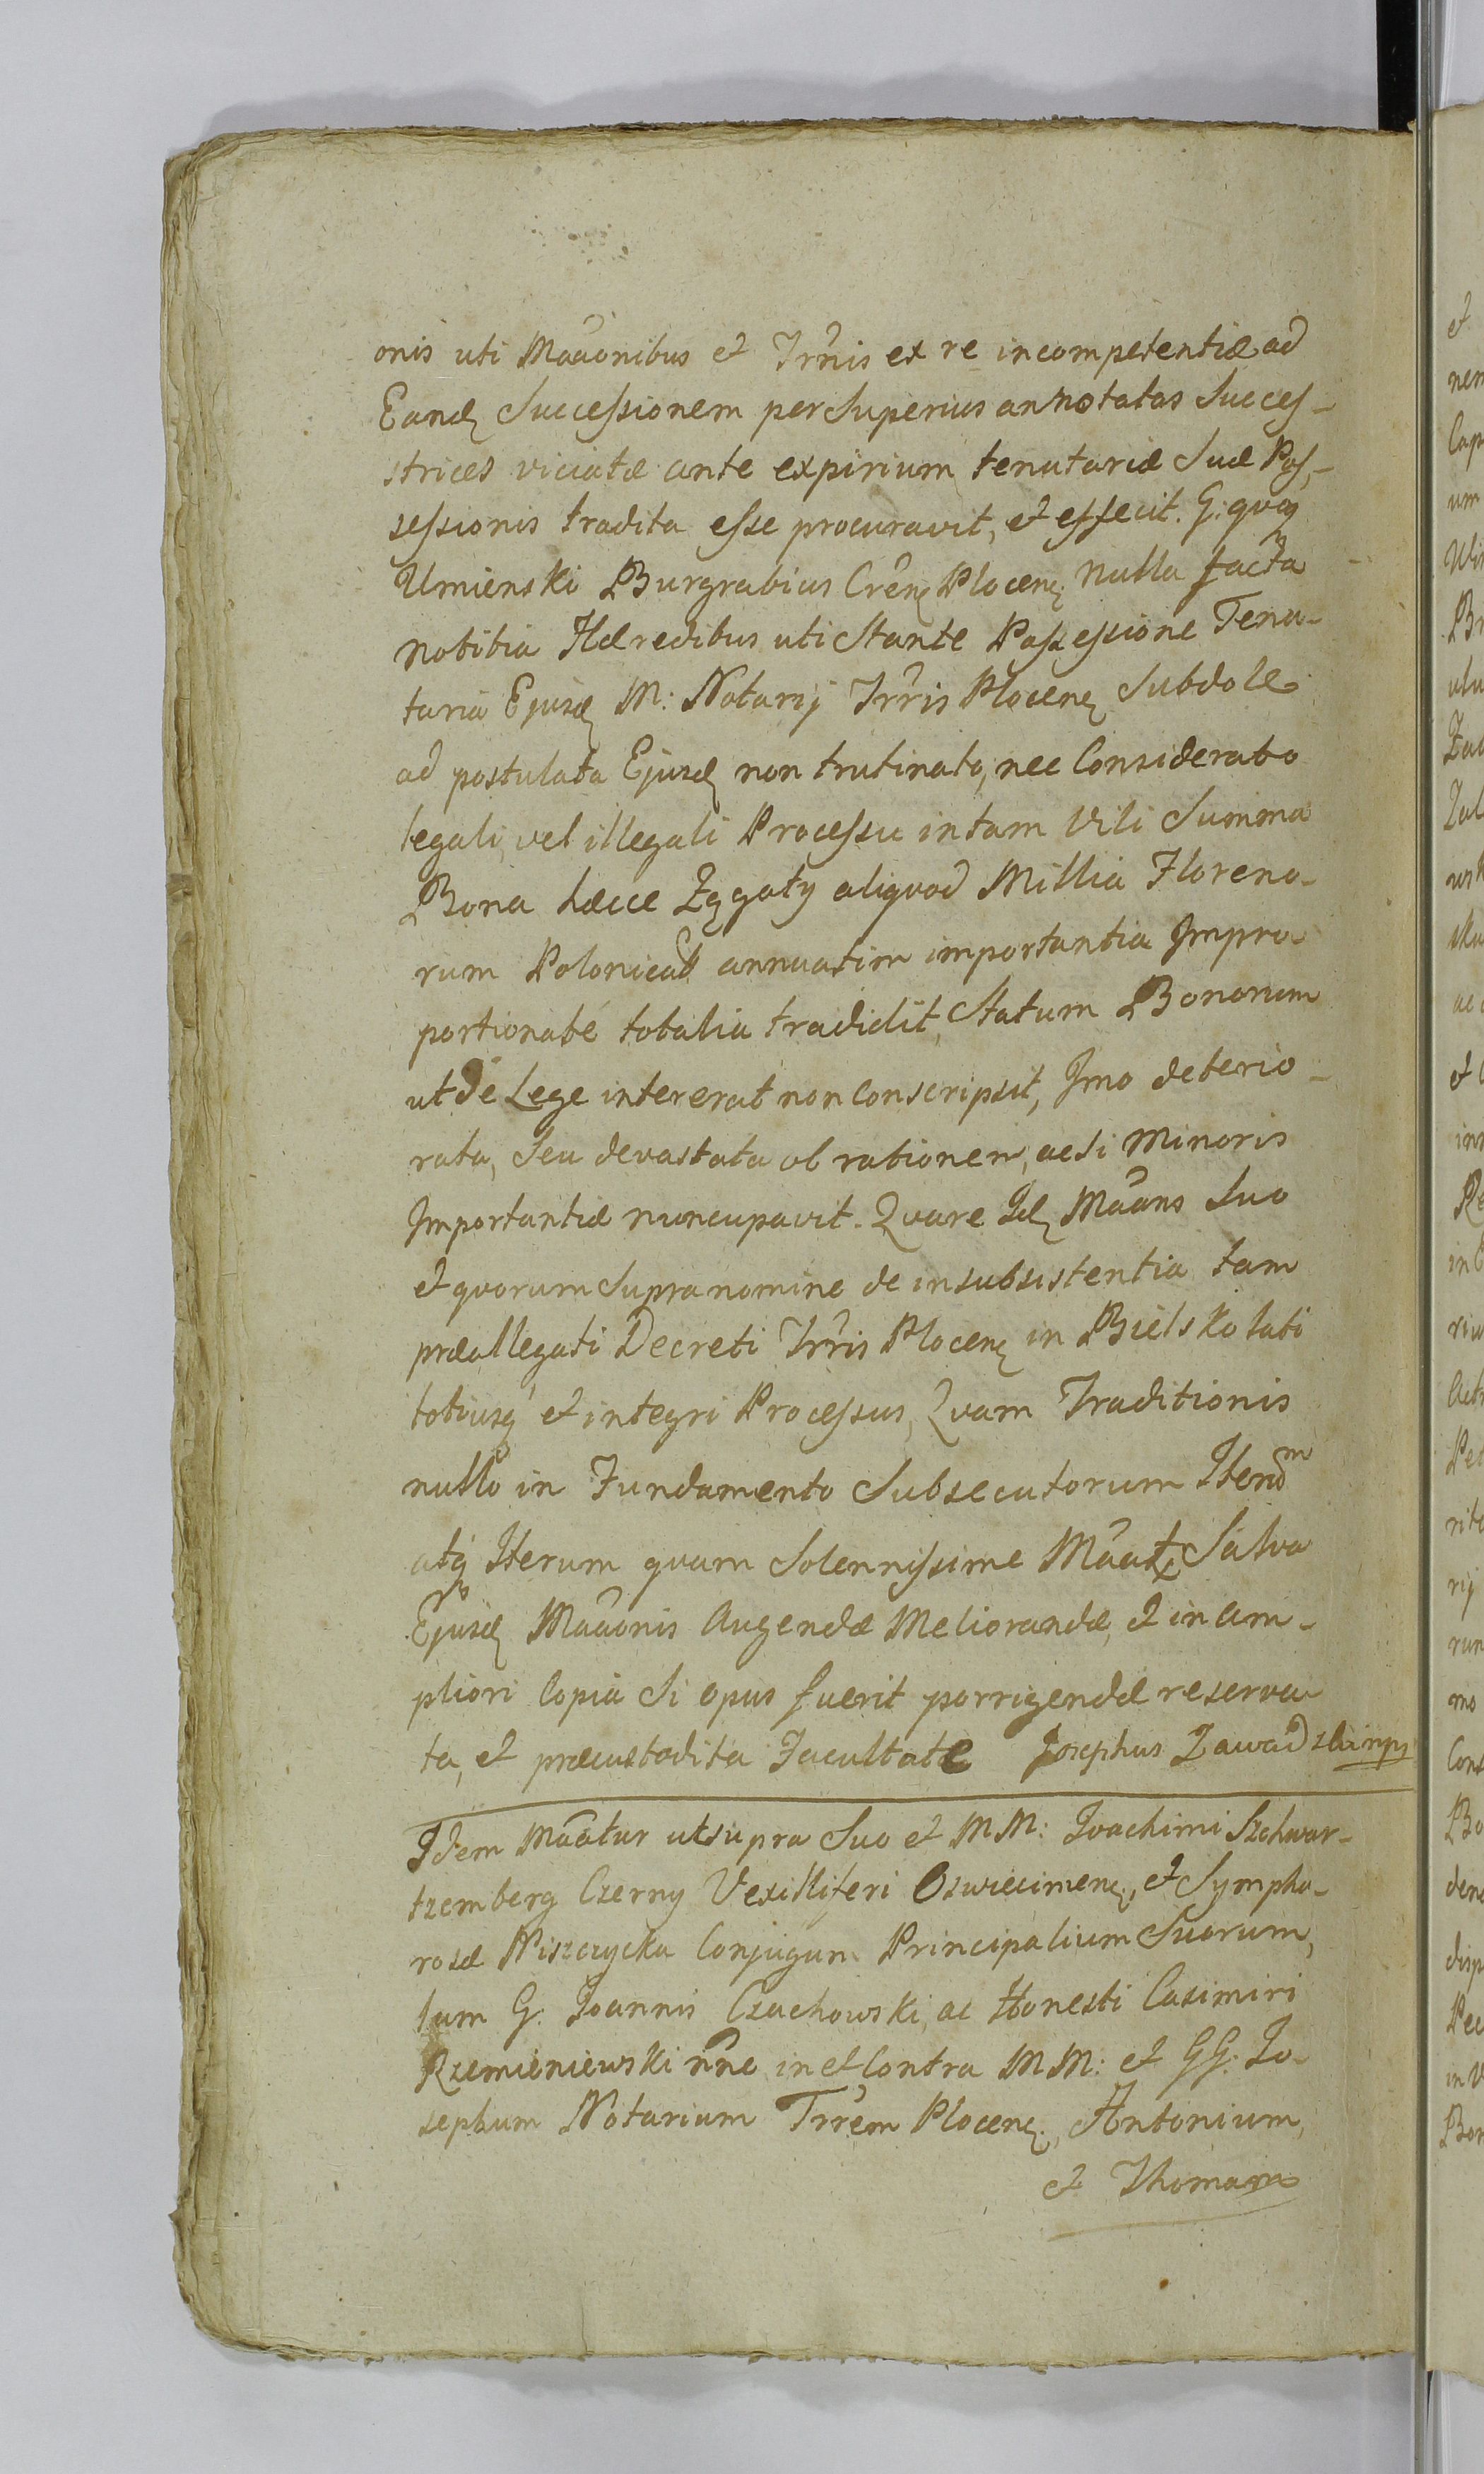 onis uti Maãonibus et Trr̃nis ex re incompetentiæ ad
Eandę Successionem per Superius annotatas Succes-
strices viciatæ ante expirium tenutariæ Suæ Pos-
sessionis tradita esse procuravit, et effecit. G: quoq
Umienski Burgrabius Crẽnę Plocenę Nulla facta
Notitia Hæredibus uti Stante Possessione Tenu-
taria Ejusdę M: Notarij Trr̃is Plocenę Subdole
ad postulata Ejusdę non trutinato, nec Considerato
legali, vel illegali Processu in tam Vili Summa
Bona hæcce Zągoty aliquod Millia Floreno-
rum Polonical annuatim importantia Impro
portionate totalia tradidit, Statum Bonorum
ut de Lege intererat non Conscripsit, Imo deterio-
rata, seu devastata ob rationem, acsi Minoris
Importantiæ nuncupavit. Quare Idę Maãns Suo
et quorum Supra nomine de insubsistentia tam
præallegati Decreti Trr̃is Plocenę in Bielsko lati
totiusq et integri Processus, Quam Traditionis
nullo in Fundamento Subsecutorum Itend̃m
atq Iterum quam Solennissime Maãtę Salva
Ejusdę Maãonis Augendæ Meliorandæ, et in Am-
pliori Copia Si opus fuerit porrigendæ reserva
ta, et præcustodita Facultate Josephus Zawadzki mpp
Idem Maãtur ut supra Suo et MM: Joachimi Szchwar-
tzemberg Czerny Vexilliferi Oswiecimenę, et Sympho-
rosæ Niszczycka Conjugum Principalium Suorum,
tum G. Joannis Czachowski, ac Honesti Casimiri
Rzemieniewski nñe in et Contra MM: et GG: Jo-
sephum Notarium Trr̃em Plocenę, Antonium,
et Thomam